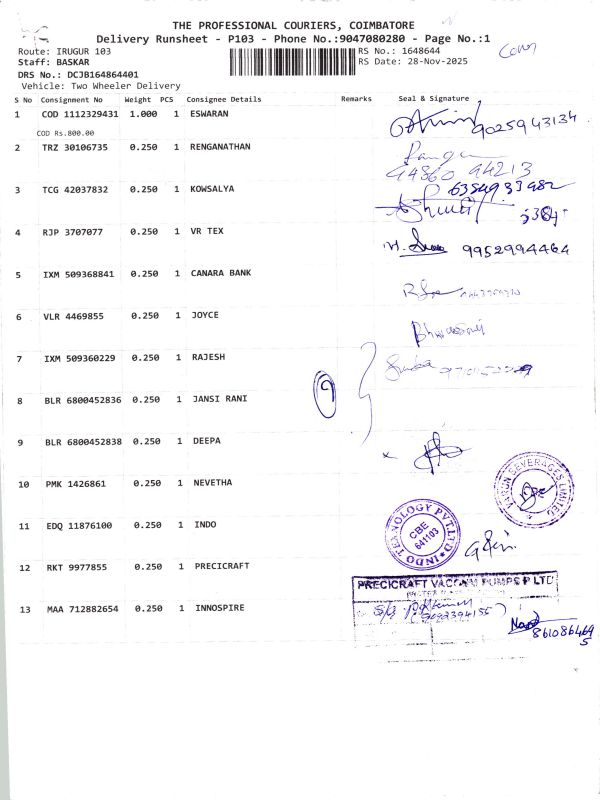 THE PROFESSIONAL COURIERS, COIMBATORE
Delivery Runsheet - P103 - Phone No.:9047080280 - Page No.:1
Route: IRUGUR 103
RS No.: 1648644
Staff: BASKAR
RS Date: 28-Nov-2025
DRS No.: DCJB164864401
Vehicle: Two Wheeler Delivery
S No Consignment No Weight PCS Consignee Details Remarks Seal & Signature
1 COD 1112329431 1.000 1 ESWARAN 9025943134
COD Rs.800.00
2 TRZ 30106735 0.250 1 RENGANATHAN
94860 94213
3 TCG 42037832 0.250 1 KOWSALYA 6384933982
4 RJP 3707077 0.250 1 VR TEX 9952994464
5 IXM 509368841 0.250 1 CANARA BANK
6 VLR 4469855 0.250 1 JOYCE
7 IXM 509360229 0.250 1 RAJESH
8 BLR 6800452836 0.250 1 JANSI RANI
9 BLR 6800452838 0.250 1 DEEPA
10 PMK 1426861 0.250 1 NEVETHA
VARUN BEVERAGES LIMITED
11 EDQ 11876100 0.250 1 INDO
INDO TEKNOLOGY PVT.LTD
CBE
641103
12 RKT 9977855 0.250 1 PRECICRAFT
PRECICRAFT VACCUM PUMPS P LTD
13 MAA 712882654 0.250 1 INNOSPIRE
9092394155
861086469
5